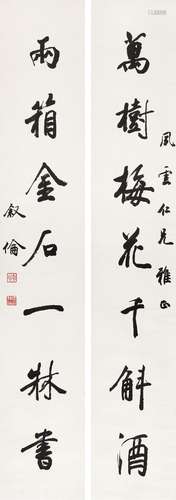 萬樹梅花千斛酒
風雲仁兄雅正
兩箱金石一牀書
敘倫